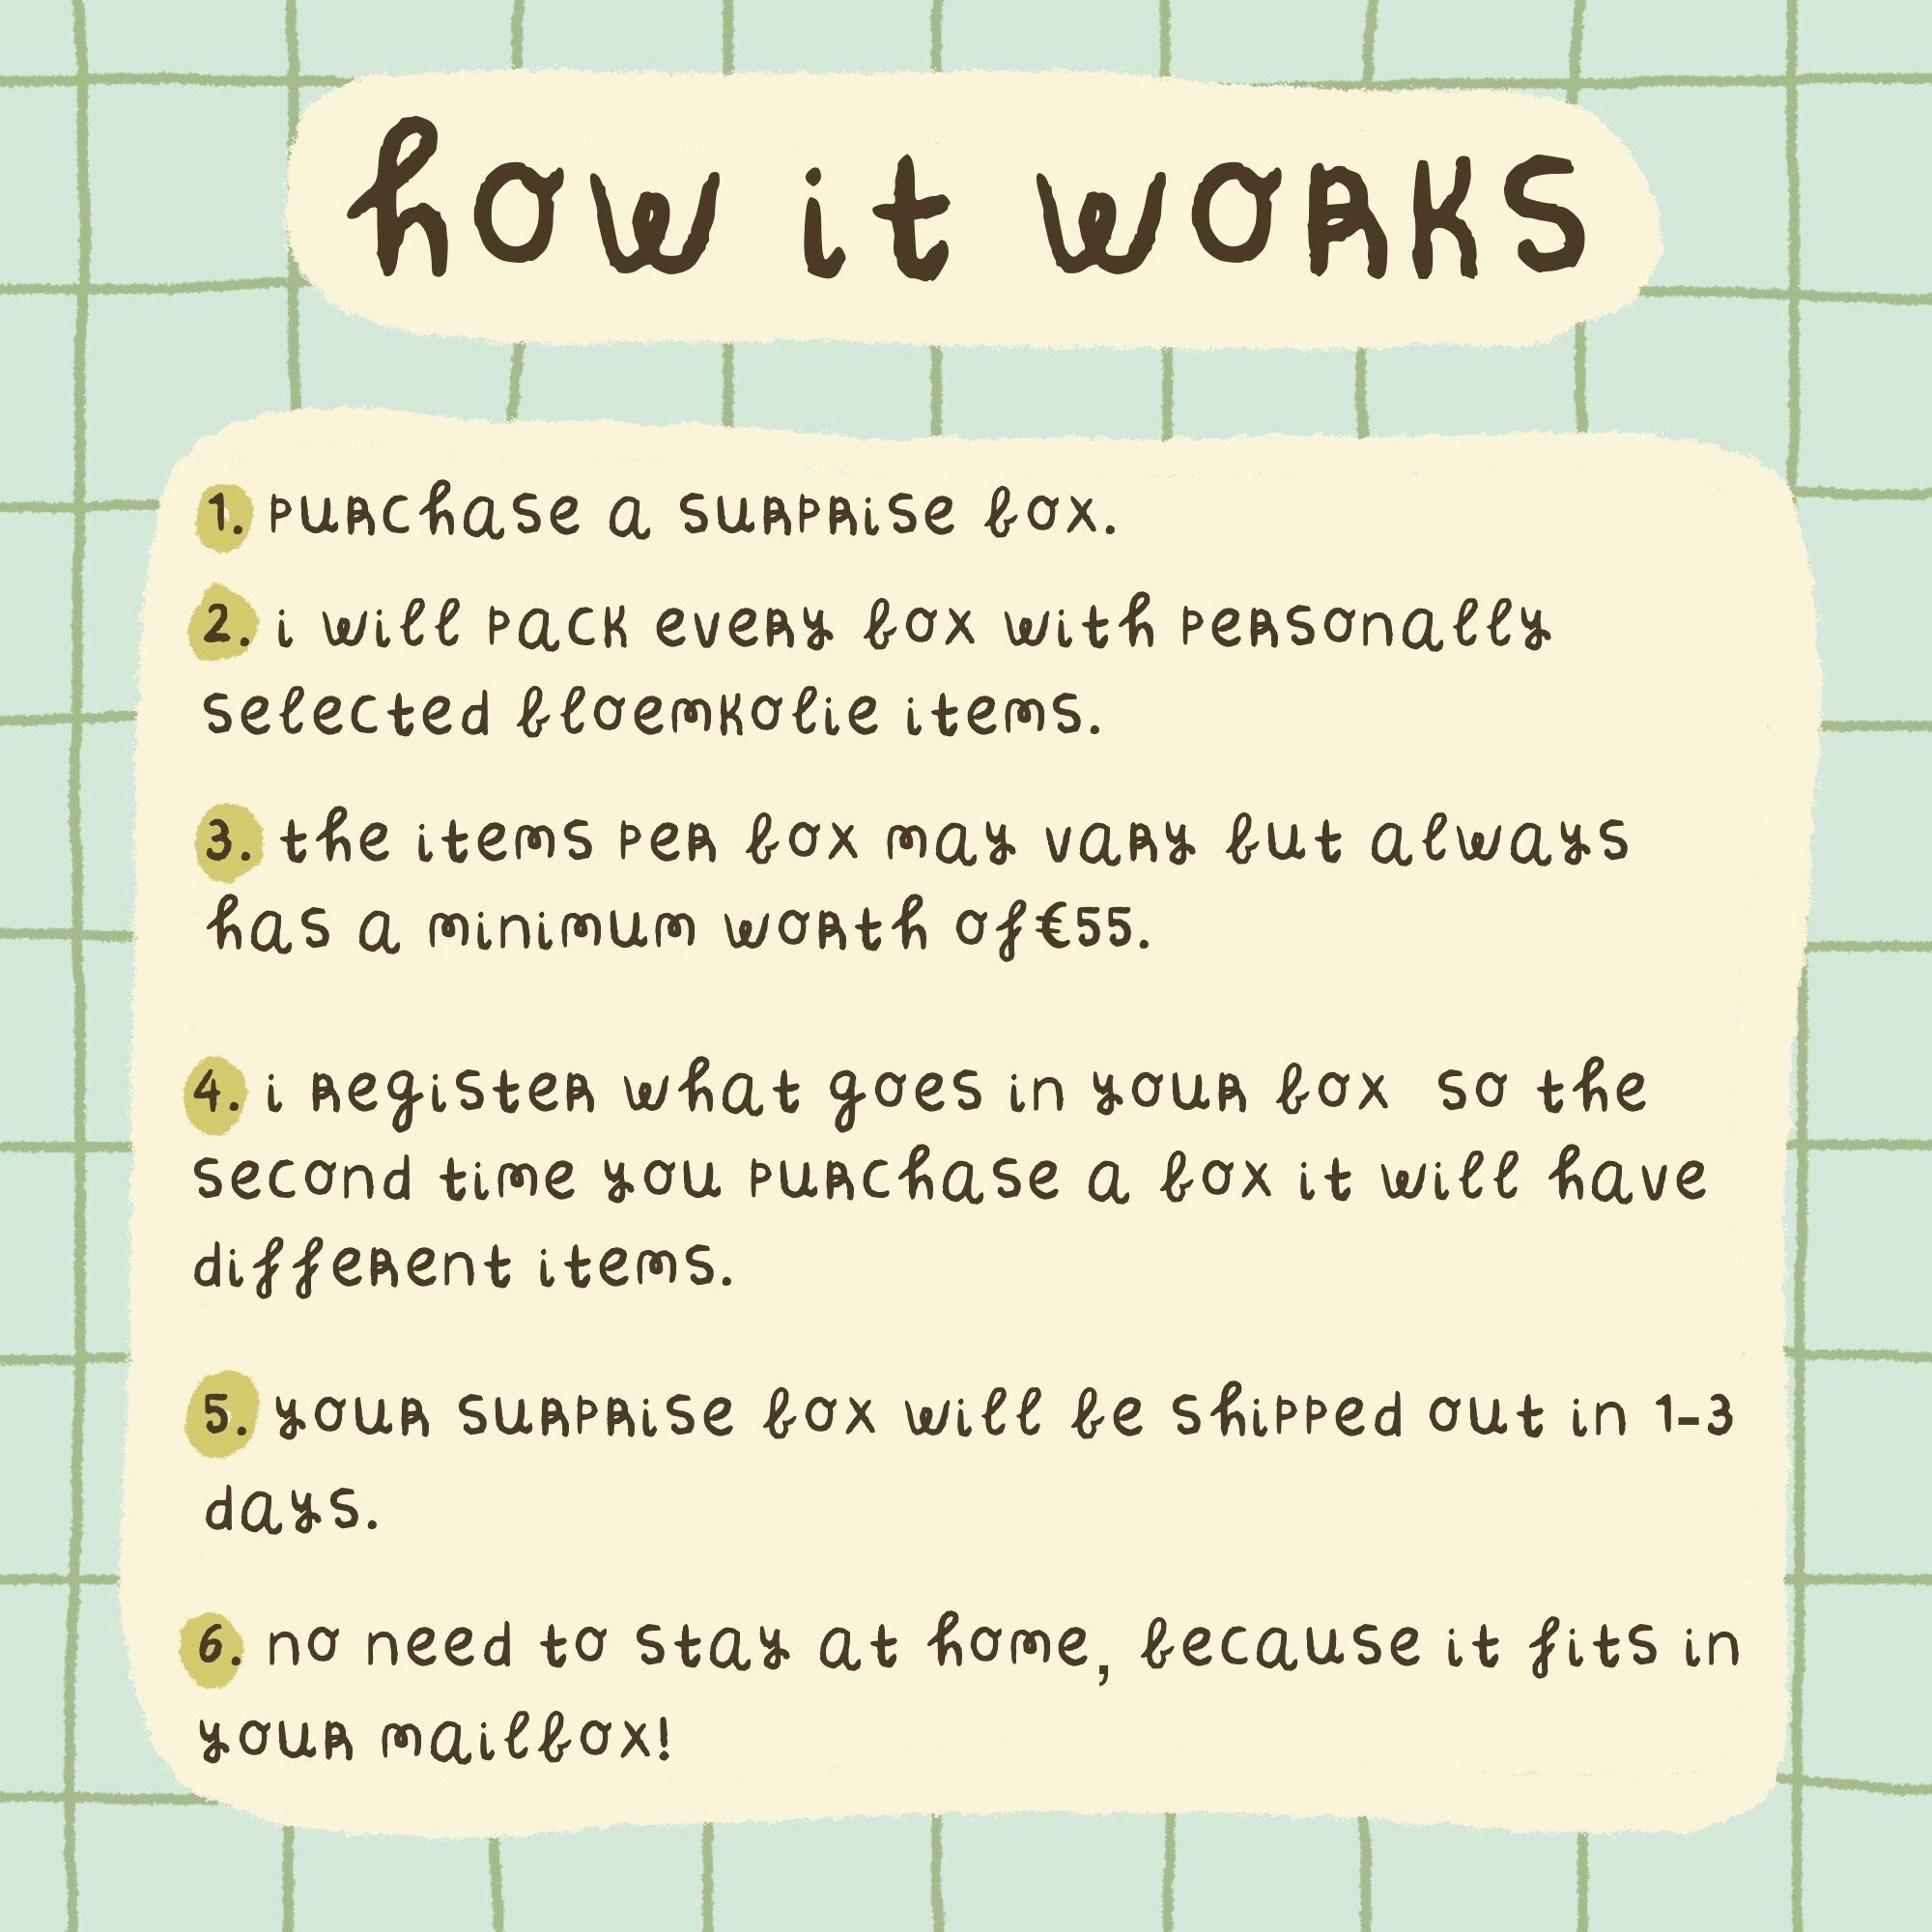 how it works
1. purchase a surprise box.
2. i will pack every box with personally
selected bloemkolie items.
3. the items per box may vary but always
has a minimum worth of €55.
4. i register what goes in your box so the
second time you purchase a box it will have
different items.
5. your surprise box will be shipped out in 1-3
days.
6. no need to stay at home, because it fits in
your mailbox!